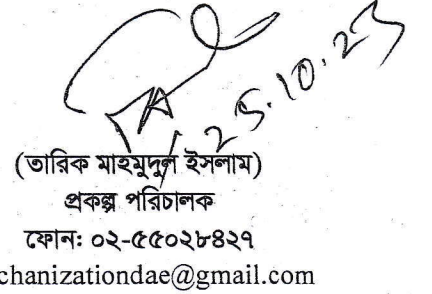 25.10.23
(তারিক মাহমুদুল ইসলাম)
প্রকল্প পরিচালক
ফোনঃ ০২-৫৫০২৮৪২৭
chanizationdae@gmail.com